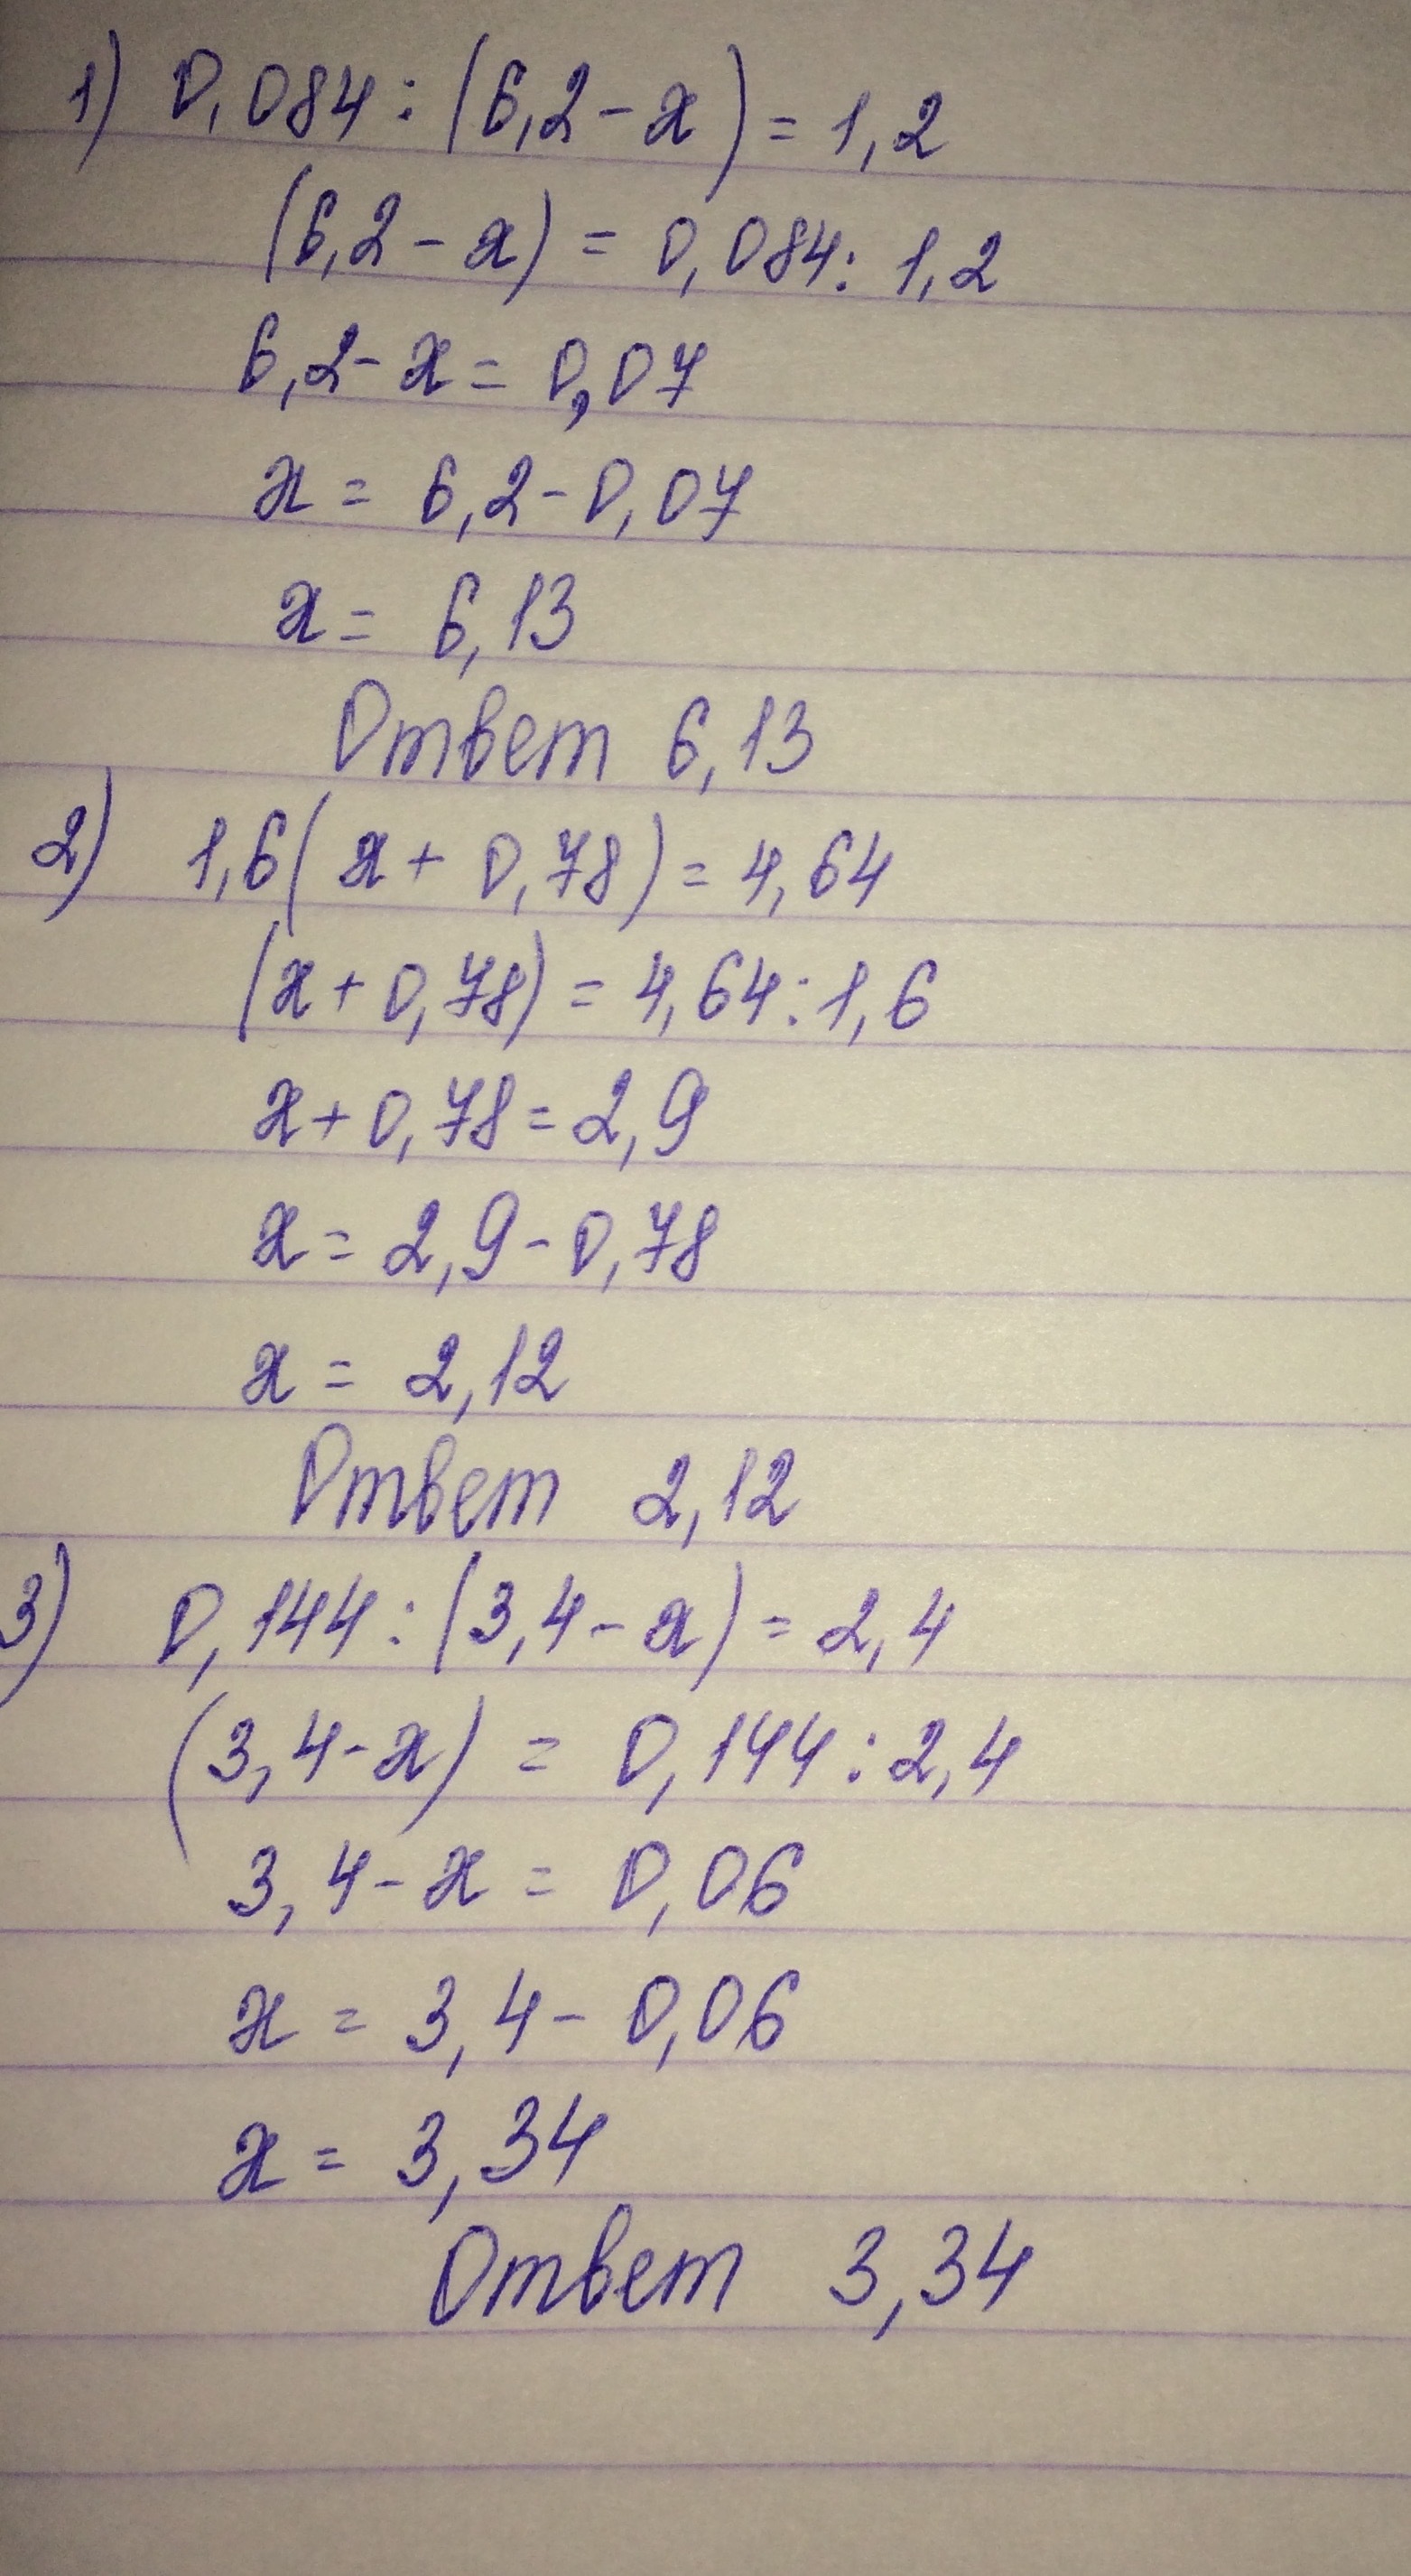 1) 0,084 : (6,2 - x) = 1,2
(6,2 - x) = 0,084 : 1,2
6,2 - x = 0,07
x = 6,2 - 0,07
x = 6,13
Ответ 6,13
2) 1,6(x + 0,78) = 4,64
(x + 0,78) = 4,64 : 1,6
x + 0,78 = 2,9
x = 2,9 - 0,78
x = 2,12
Ответ 2,12
3) 0,144 : (3,4 - x) = 2,4
(3,4 - x) = 0,144 : 2,4
3,4 - x = 0,06
x = 3,4 - 0,06
x = 3,34
Ответ 3,34